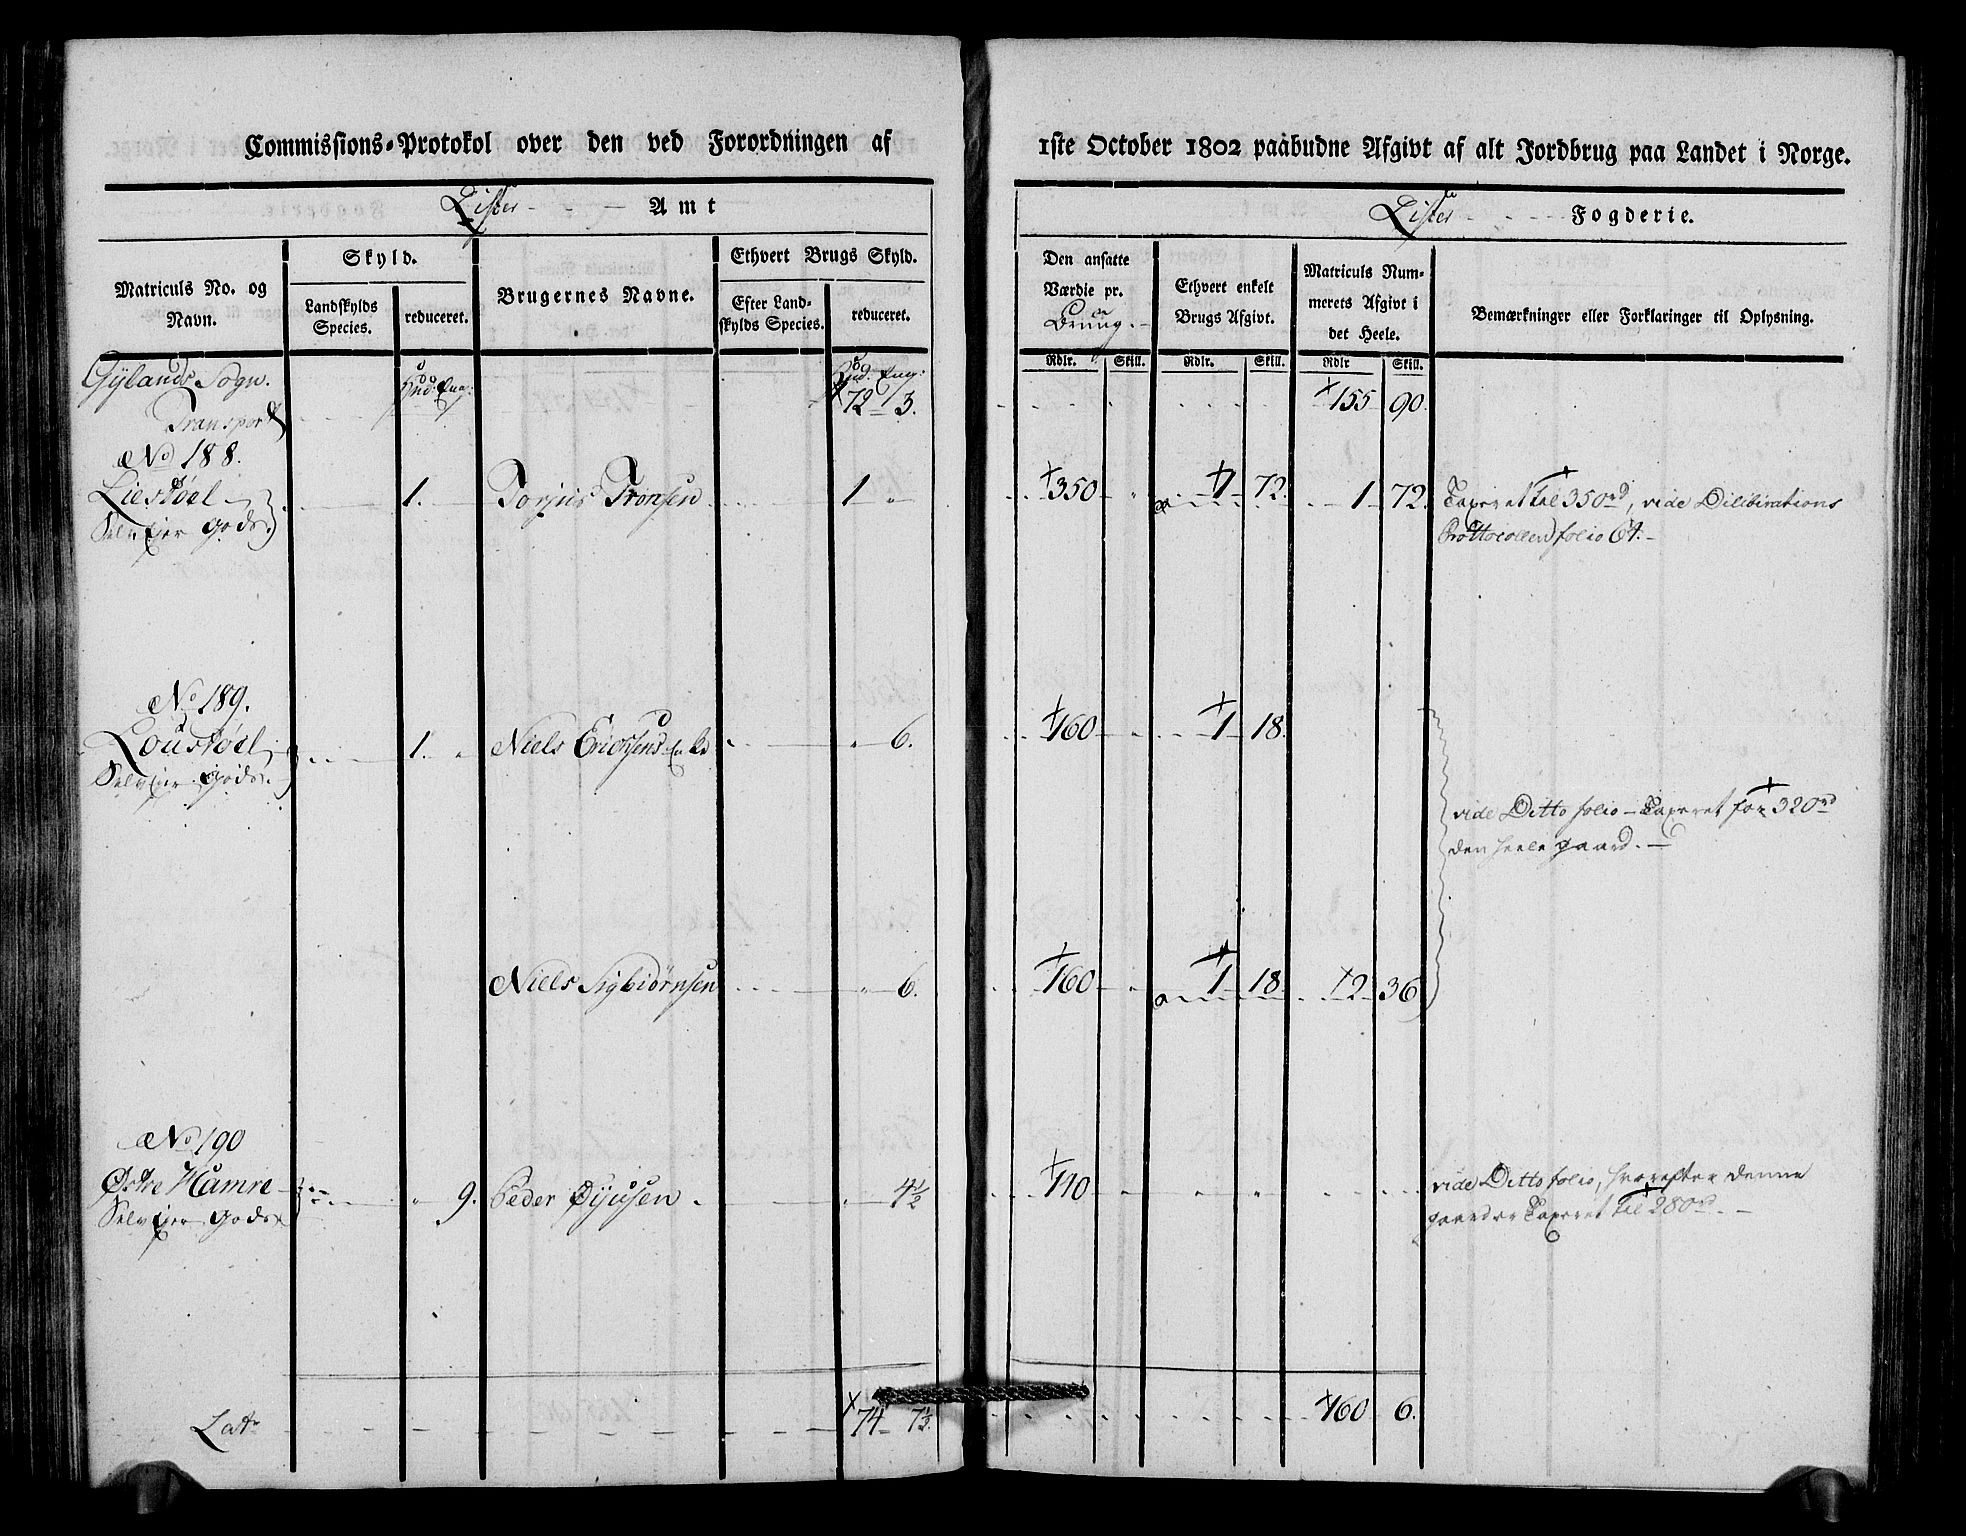 Commissions-Protokol over den ved Forordningen af
1ste October 1802 paabudne Afgivt af alt Jordbrug paa Landet i Norge.
Lister Amt
Lister Fogderie.
Matriculs No. og Navn.
Skyld.
Landskylds Species.
reduceret.
Brugernes Navne.
Ethvert Brugs Skyld.
Efter Landskylds Species.
reduceret.
Den ansatte Værdie pr. Bruug.
Ethvert enkelt Brugs Afgivt.
Matriculs Nummerets Afgivt i det Heele.
Bemærkninger eller Forklaringer til Oplysning.
Rdlr. Skill. Rdlr. Skill. Rdlr Skill.
Gylands Sogn. Hud. Eng: Hud. Eng:
Transport 72 3. 155 90.
No 188.
Liestøel 1. Torjus Tronsen 1 " 350 " 1 72 1 72. Taxeret til 350rd, vide Dilibirations
Selv Ejer Gods. Prottocollen folio 64.
No 189.
Loustøel 1. " Niels Erichsens Enke " 6. 160 1 18
Selv Ejer Gods.
vide Ditto folio – Taxeret for 320rd
den heele gaard.
Niels Sigbiørnsen " 6. 160 " 1 18 2 36
No 190
Østre Hamre " 9. Peder Øyusen " 4½ 110 " vide Ditto folio, hvorefter denne
Selv Ejer Gods gaard er Taxeret til 280rd.
Lat. 74 7½. 160 6.